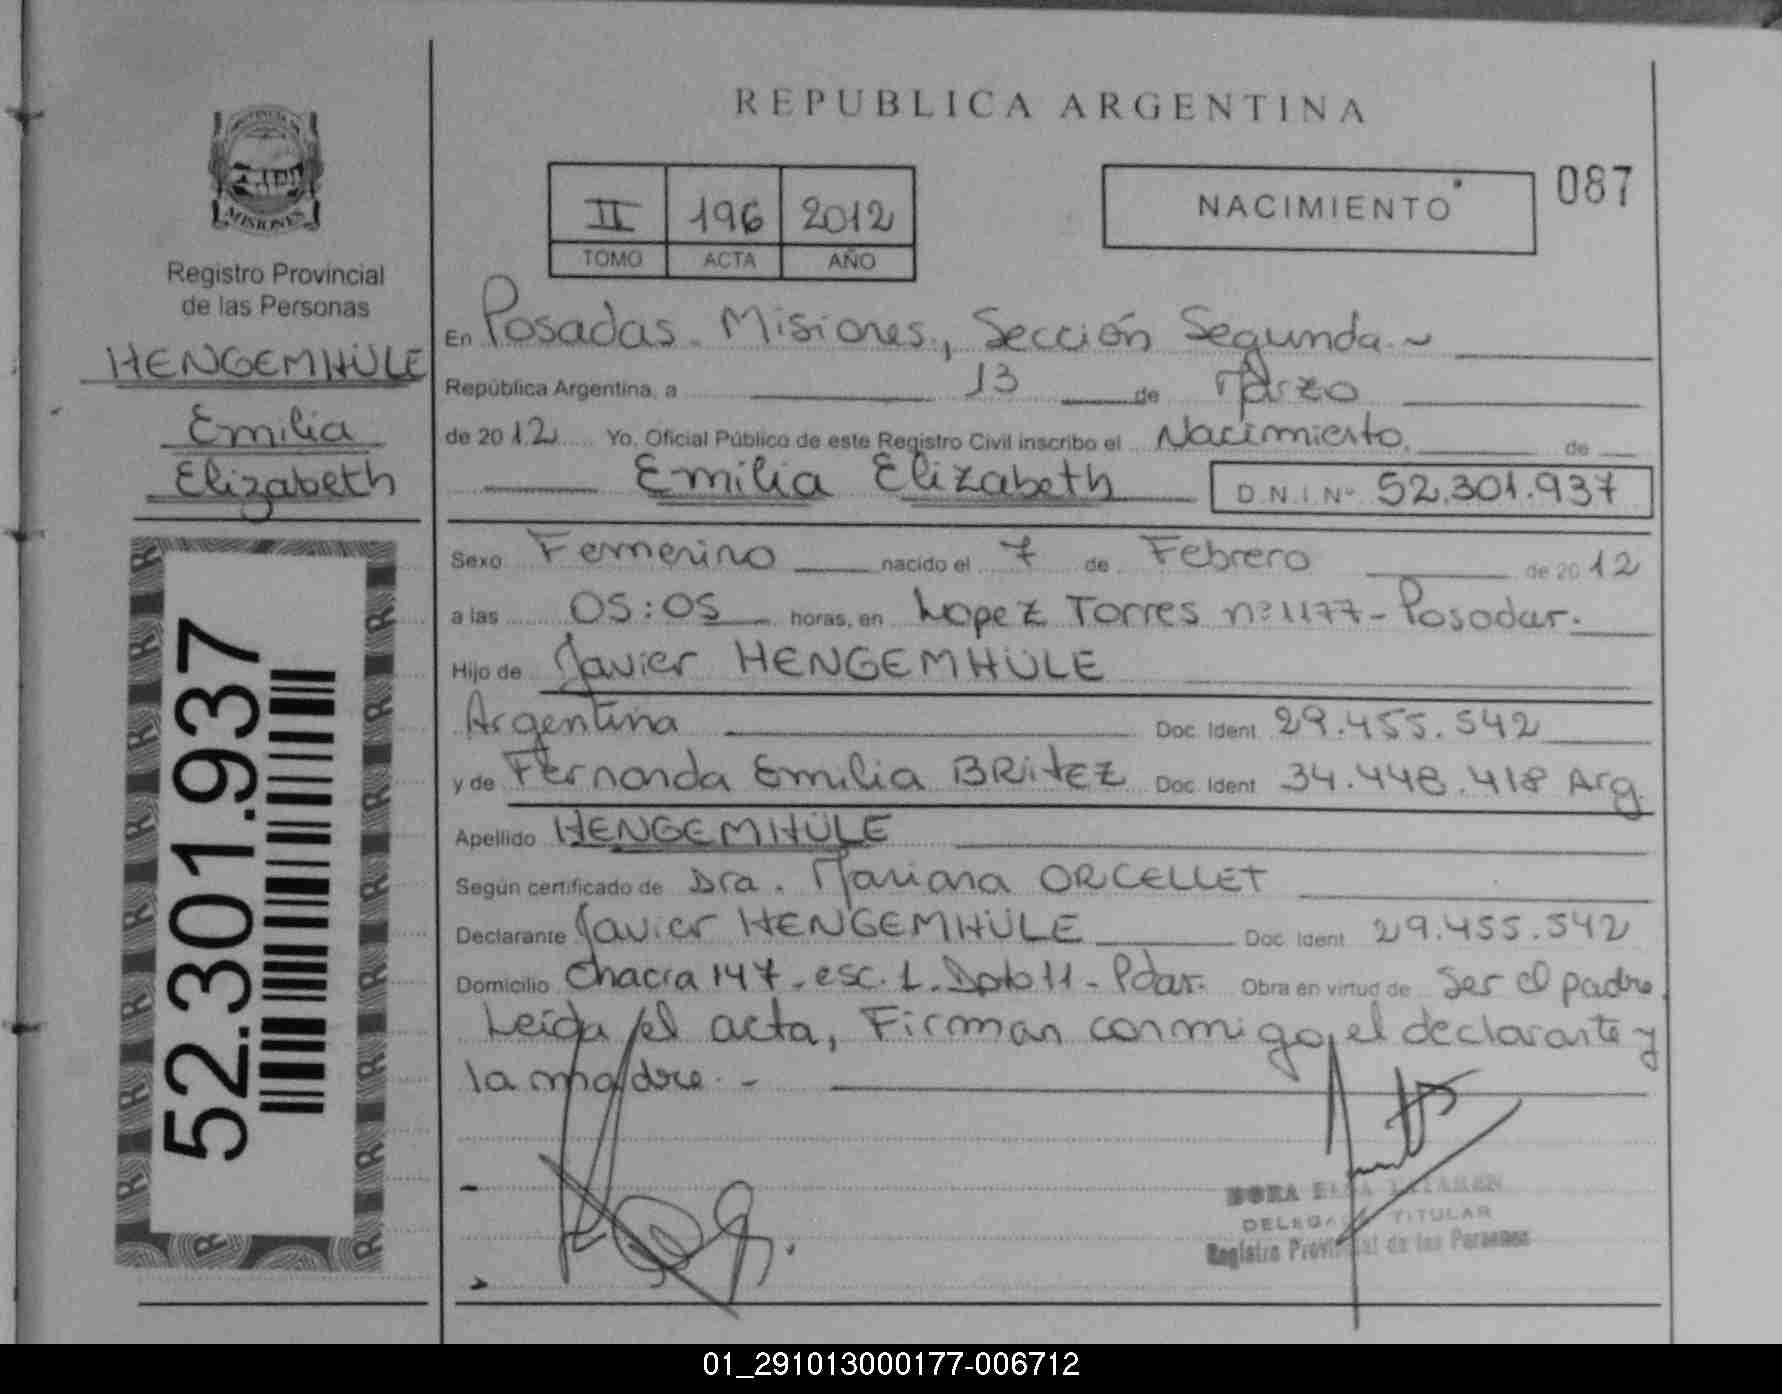 REPUBLICA ARGENTINA
MISIONES
Registro Provincial
de las Personas
HENGEMHÜLE
Emilia
Elizabeth
52.301.937
II 196 2012
TOMO ACTA AÑO
NACIMIENTO
087
En Posadas. Misiones, Sección Segunda.
República Argentina, a 13 de Marzo
de 2012 Yo, Oficial Público de este Registro Civil inscribo el Nacimiento. de
Emilia Elizabeth D.N.I. Nº 52.301.937
Sexo Femenino nacido el 7 de Febrero de 2012
a las 05:05 horas, en Lopez Torres nº 1177 - Posadas.
Hijo de Javier HENGEMHÜLE
Argentina Doc. Ident. 29.455.542
y de Fernanda Emilia BRITEZ Doc. Ident. 34.448.418 Arg.
Apellido HENGEMHÜLE
Según certificado de Dra. Mariana ORCELLET
Declarante Javier HENGEMHÜLE Doc. Ident. 29.455.542
Domicilio Chacra 147 - esc. 1. Dpto 11 - Pdas. Obra en virtud de Ser el padre.
Leída el acta, Firman conmigo, el declarante y
la madre. -
DORA
DELEGADA TITULAR
Registro Provincial de las Personas
01_291013000177-006712